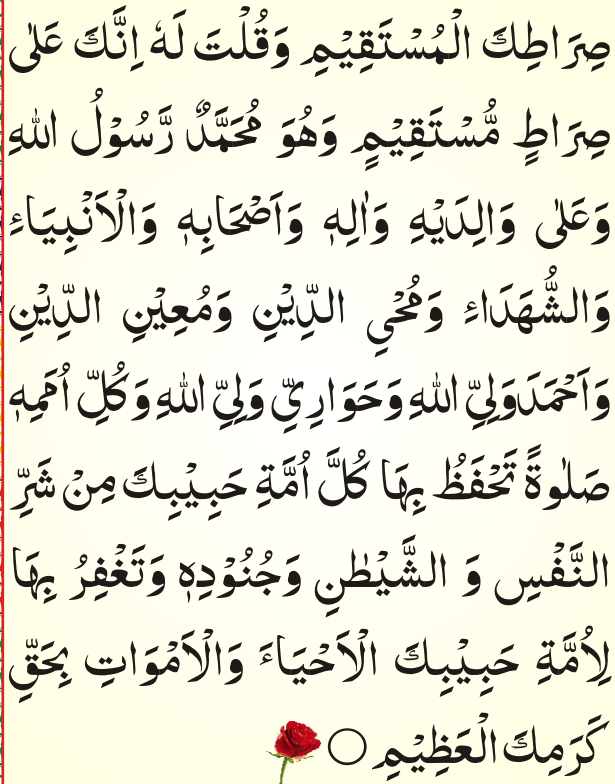 صِرَاطِكَ الْمُسْتَقِيْمِ وَقُلْتَ لَهٗ اِنَّكَ عَلٰى
صِرَاطٍ مُّسْتَقِيْمٍ وَهُوَ مُحَمَّدٌ رَّسُوْلُ اللّٰهِ
وَعَلٰى وَالِدَيْهِ وَاٰلِهٖ وَاَصْحَابِهٖ وَالْاَنْبِيَاءِ
وَالشُّهَدَاءِ وَمُحْيِ الدِّيْنِ وَمُعِيْنِ الدِّيْنِ
وَاَحْمَدَ وَلِيِّ اللّٰهِ وَحَوَارِيِّ وَلِيِّ اللّٰهِ وَكُلِّ اُمَمِهٖ
صَلٰوةً تَحْفَظُ بِهَا كُلَّ اُمَّةِ حَبِيْبِكَ مِنْ شَرِّ
النَّفْسِ وَ الشَّيْطٰنِ وَجُنُوْدِهٖ وَتَغْفِرُ بِهَا
لِاُمَّةِ حَبِيْبِكَ الْاَحْيَاءَ وَالْاَمْوَاتِ بِحَقِّ
كَرَمِكَ الْعَظِيْمِ ○